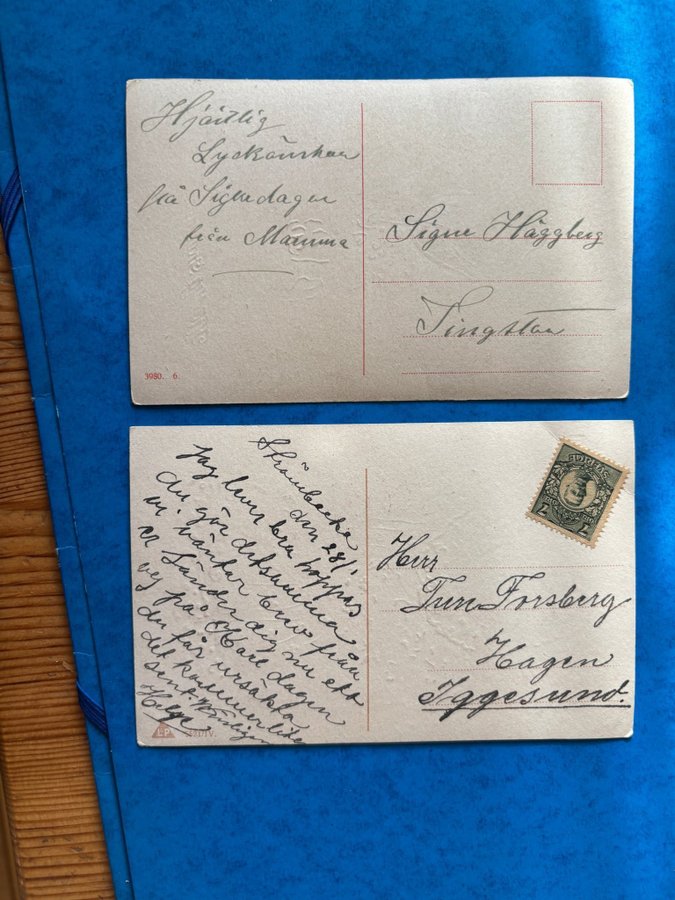 Hjärtlig
Lyckönskan
på Signedagen
från Mamma
Signe Häggberg
Tingstan
3980. 6.
Strömbacka
den 28/1
Jag lever bra hoppas
du gör detsamma
vi väntar brev från
er Sänder dig nu ett
vy på Karl dagen
du får ursäkta
det kommer lite
sent. Vänligen
Helge
Herr
Ture Forsberg
Hagen
Iggesund.
SVERIGE
7
7
L·P